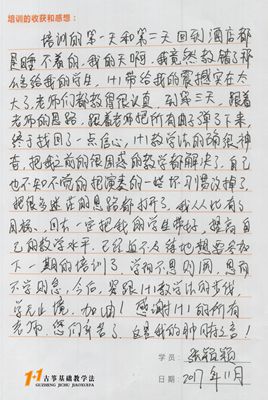 培训的收获和感想：
培训的第一天和第二天回到酒店都
是睡不着的，我的天啊，我竟然教错了那
么多给我的学生，1+1带给我的震撼实在太
大了，老师们都教得很认真，到第三天，跟着
老师的思路，跟着老师把所有曲子弹了下来，
终于找回了一点信心，1+1教学法的确很神
奇，把我之前的很困惑的教学都解决了，自己
也不知不觉的把演奏的一些坏习惯改掉了，
把很多迷茫的思路都打开了，我从此有了
目标，回去一定把我的学生带好，提高自
己的教学水平，已经迫不及待地想要参加
下一期的培训了，学而不思则罔，思而
不学则怠，今后，紧跟1+1教学法的步伐，
学无止境，加油！感谢1+1的所有
老师，您们辛苦了，这是我的肺腑之言！
学员：张颖颖
日期：2017年11月
1+1古筝基础教学法
GUZHENG JICHU JIAOXUEFA